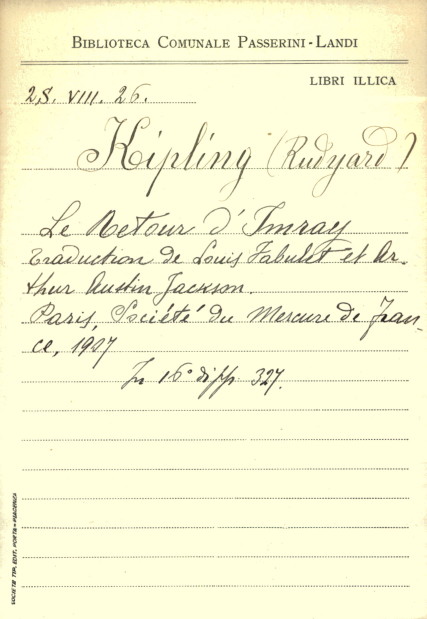 BIBLIOTECA COMUNALE PASSERINI-LANDI
LIBRI ILLICA
28. VIII. 26.
Kipling (Rudyard)
Le Retour d'Imray
Traduction de Louis Fabulet et Ar-
thur Austin Jackson.
Paris, Société du Mercure de Fran-
ce, 1907
In 16° di pp. 327.
SOCIETÀ TIP. EDIT. PORTA - PIACENZA